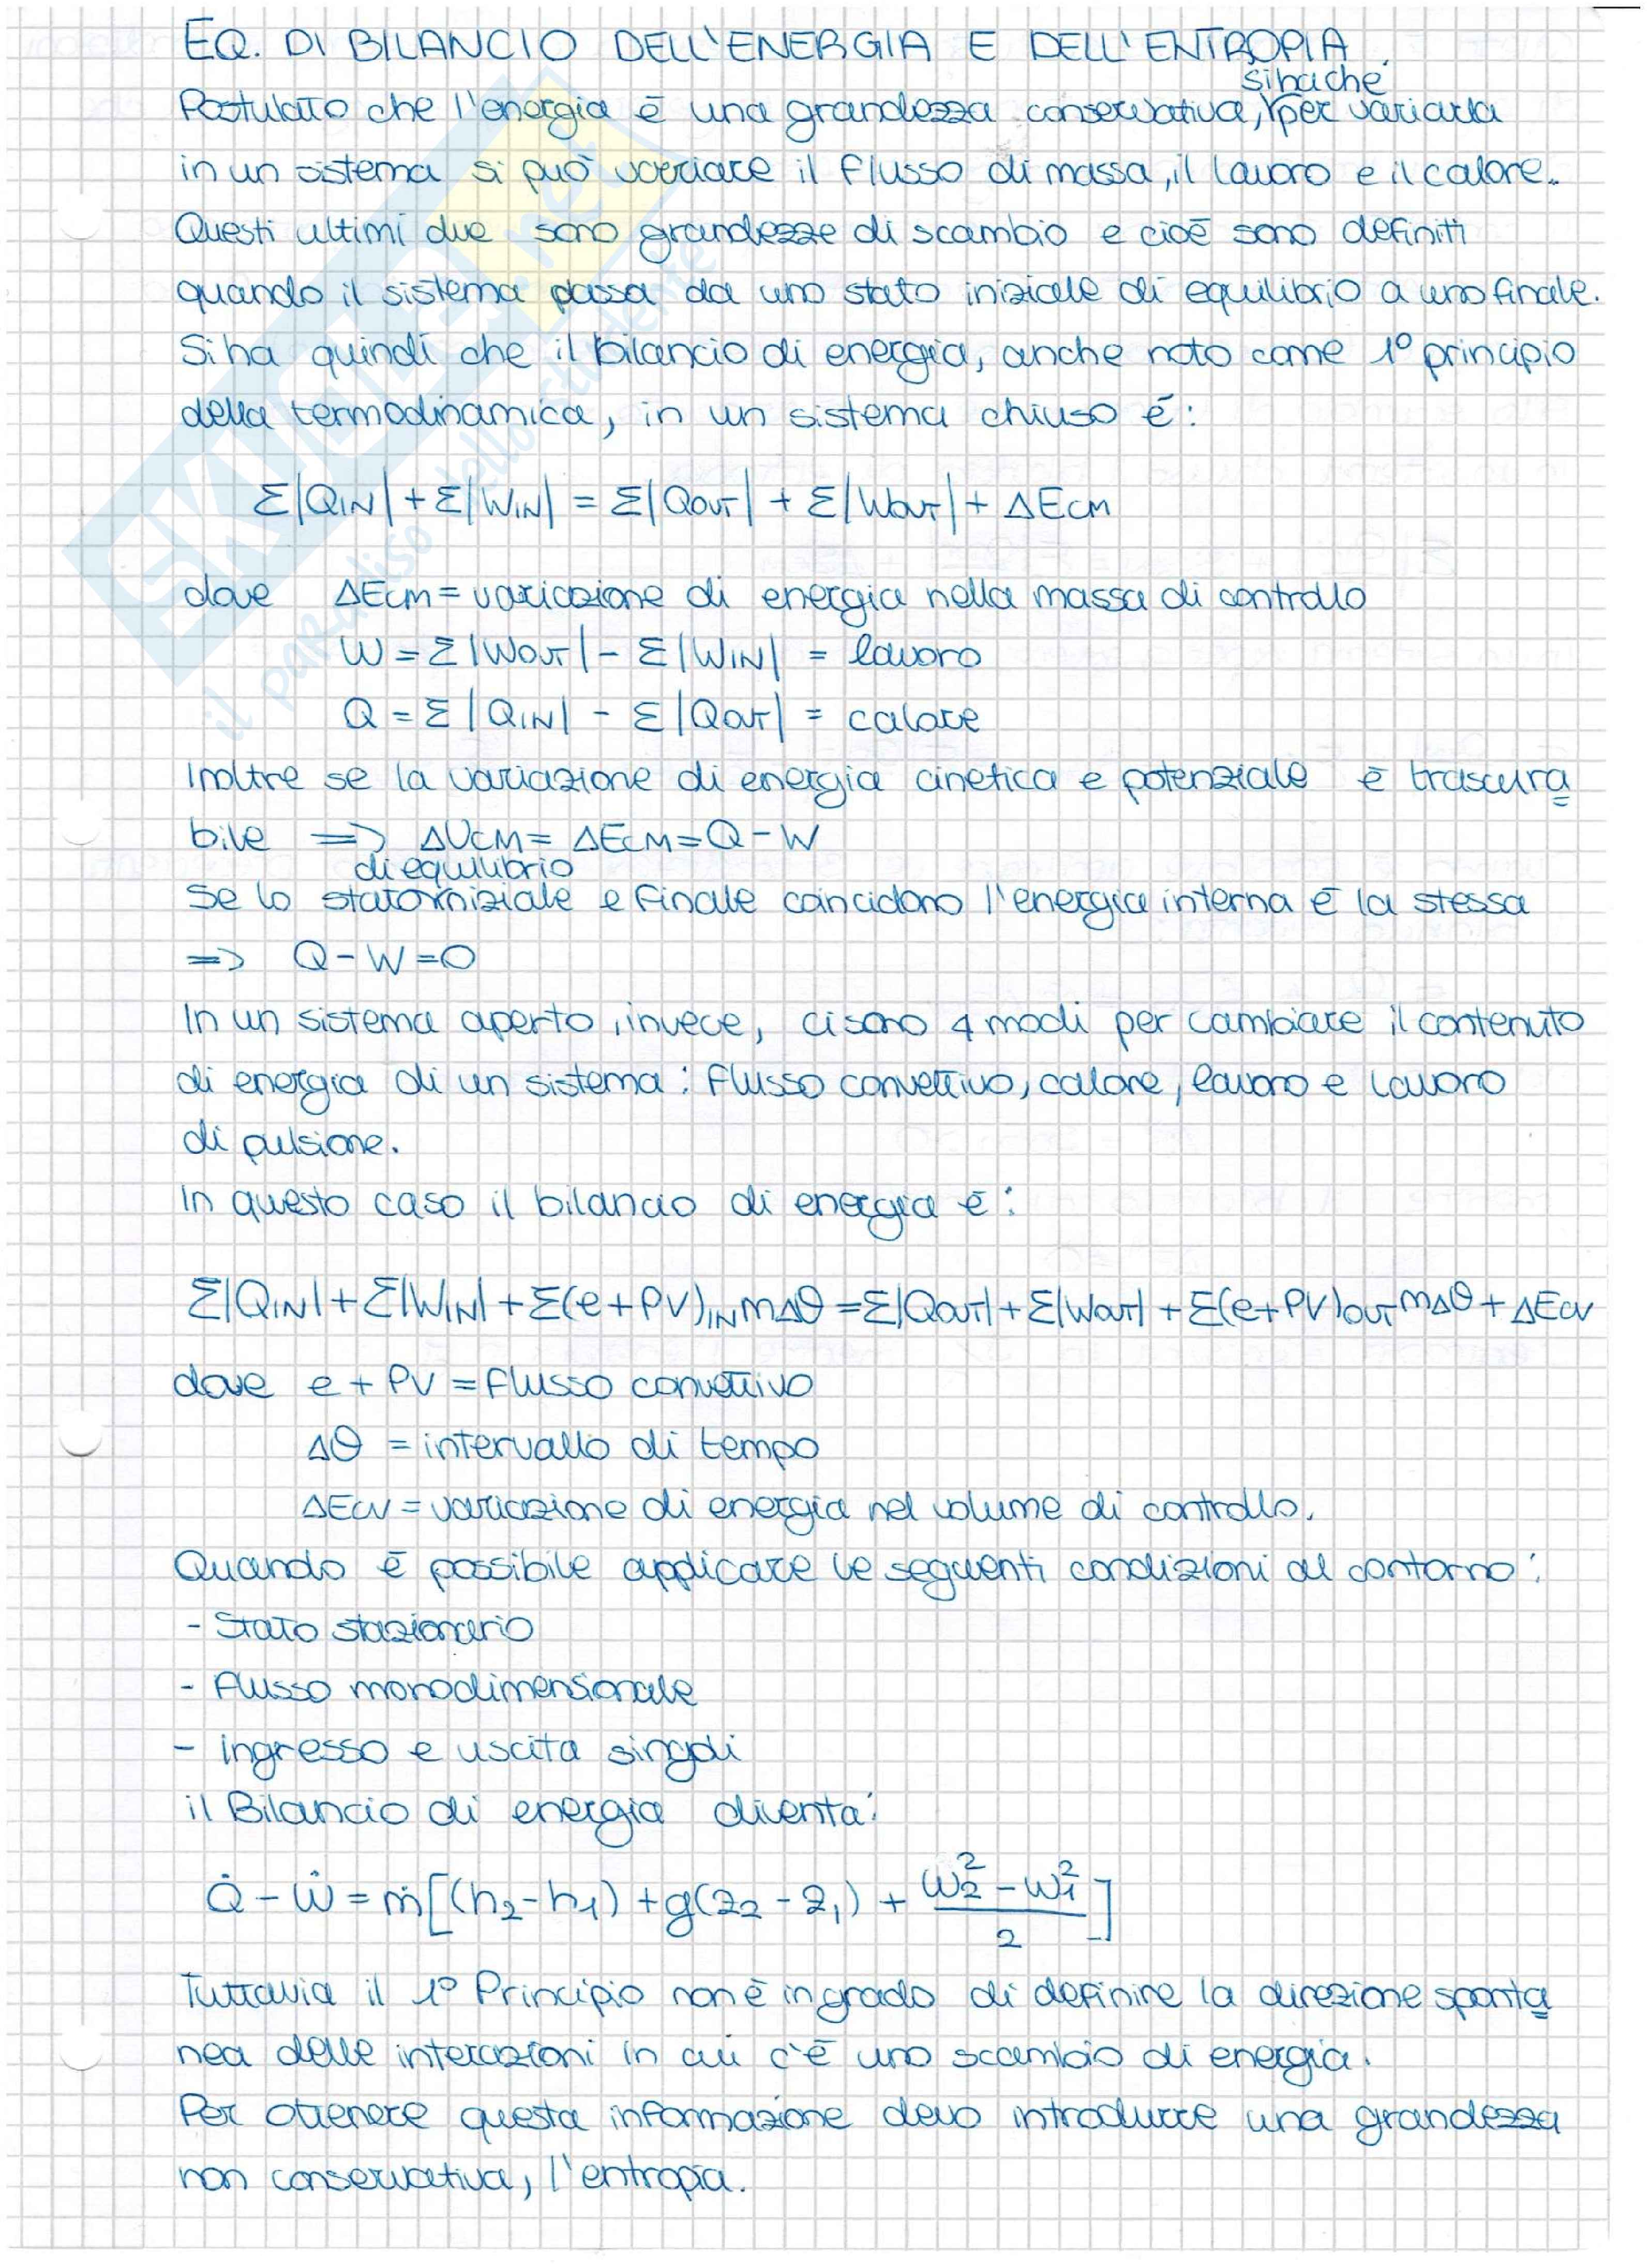 EQ. DI BILANCIO DELL'ENERGIA E DELL'ENTROPIA
si ha che
Postulato che l'energia è una grandezza conservativa, per variarla
in un sistema si può variare il flusso di massa, il lavoro e il calore.
Questi ultimi due sono grandezze di scambio e cioè sono definiti
quando il sistema passa da uno stato iniziale di equilibrio a uno finale.
Si ha quindi che il bilancio di energia, anche noto come 1° principio
della termodinamica, in un sistema chiuso è:
Σ|QIN| + Σ|WIN| = Σ|QOUT| + Σ|WOUT| + ΔECM
dove ΔECM = variazione di energia nella massa di controllo
W = Σ|WOUT| - Σ|WIN| = lavoro
Q = Σ|QIN| - Σ|QOUT| = calore
Inoltre se la variazione di energia cinetica e potenziale è trascura
bile => ΔUCM = ΔECM = Q - W
di equilibrio
Se lo stato iniziale e finale coincidono l'energia interna è la stessa
=> Q - W = 0
In un sistema aperto, invece, ci sono 4 modi per cambiare il contenuto
di energia di un sistema: flusso convettivo, calore, lavoro e lavoro
di pulsione.
In questo caso il bilancio di energia è:
Σ|QIN| + Σ|WIN| + Σ(e+PV)IN mΔθ = Σ|QOUT| + Σ|WOUT| + Σ(e+PV)OUT mΔθ + ΔECV
dove e + PV = flusso convettivo
Δθ = intervallo di tempo
ΔECV = variazione di energia nel volume di controllo.
Quando è possibile applicare le seguenti condizioni al contorno:
- Stato stazionario
- flusso monodimensionale
- ingresso e uscita singoli
il Bilancio di energia diventa:
Q̇ - Ẇ = ṁ[(h₂-h₁) + g(z₂-z₁) + (w₂² - w₁²)/2]
Tuttavia il 1° Principio non è in grado di definire la direzione sponta
nea delle interazioni in cui c'è uno scambio di energia.
Per ottenere questa informazione devo introdurre una grandezza
non conservativa, l'entropia.
SKUOLA.net
il paradiso dello studente